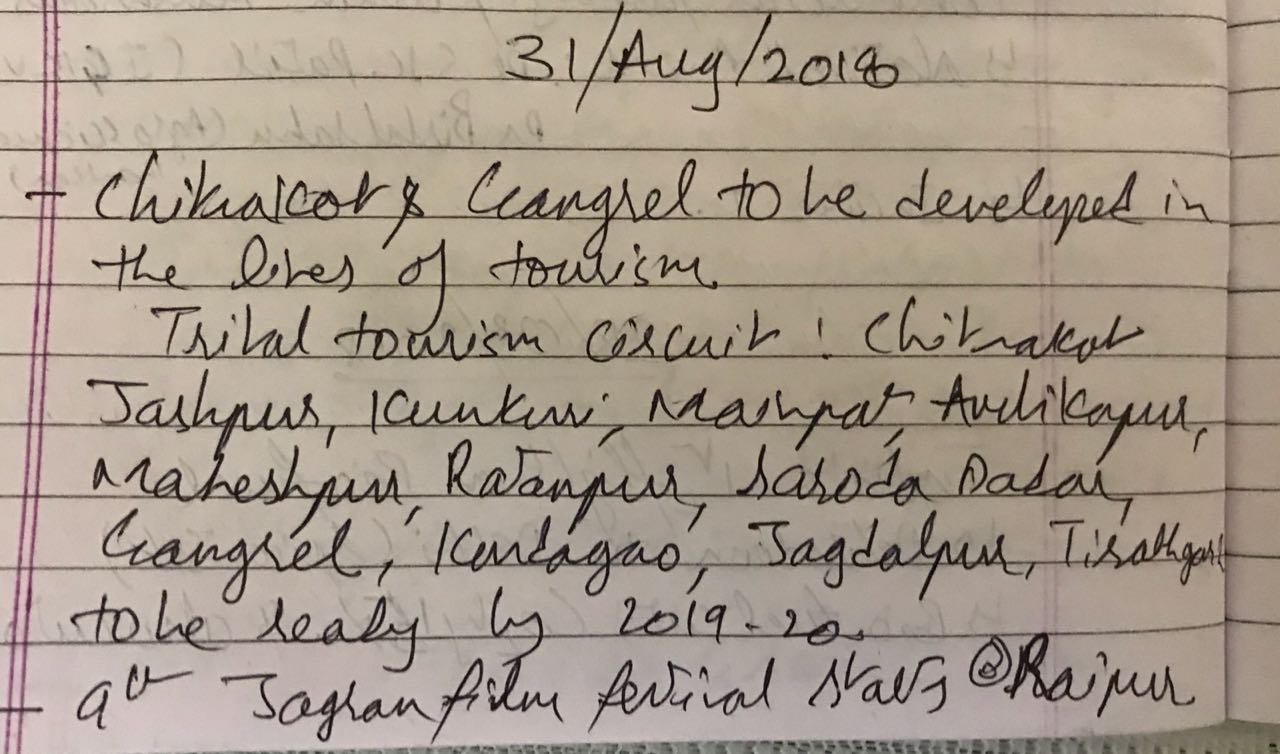 31/Aug/2018
- Chitrakot & Gangrel to be developed in
the lines of tourism.
Tribal tourism circuit : Chitrakot
Jashpur, Kunkuri, Mainpat, Ambikapur,
Maheshpur, Ratanpur, Saroda Dadar,
Gangrel, Kondagao, Jagdalpur, Tirathgarh
to be ready by 2019-20.
- 9th Jagran film festival starts @Raipur